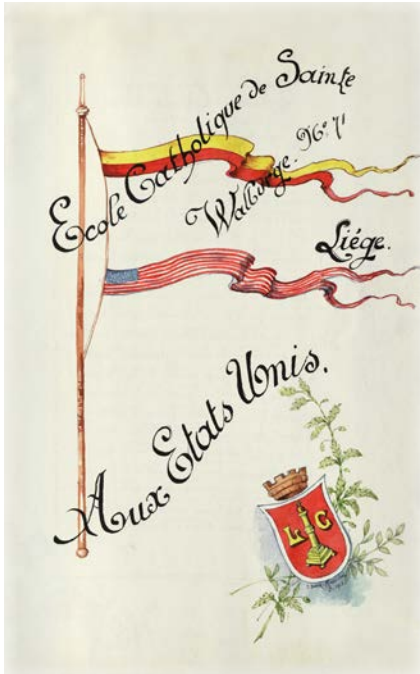 Ecole Catholique de Sainte
Walburge. N°.
Liége.
Aux Etats Unis.
L G